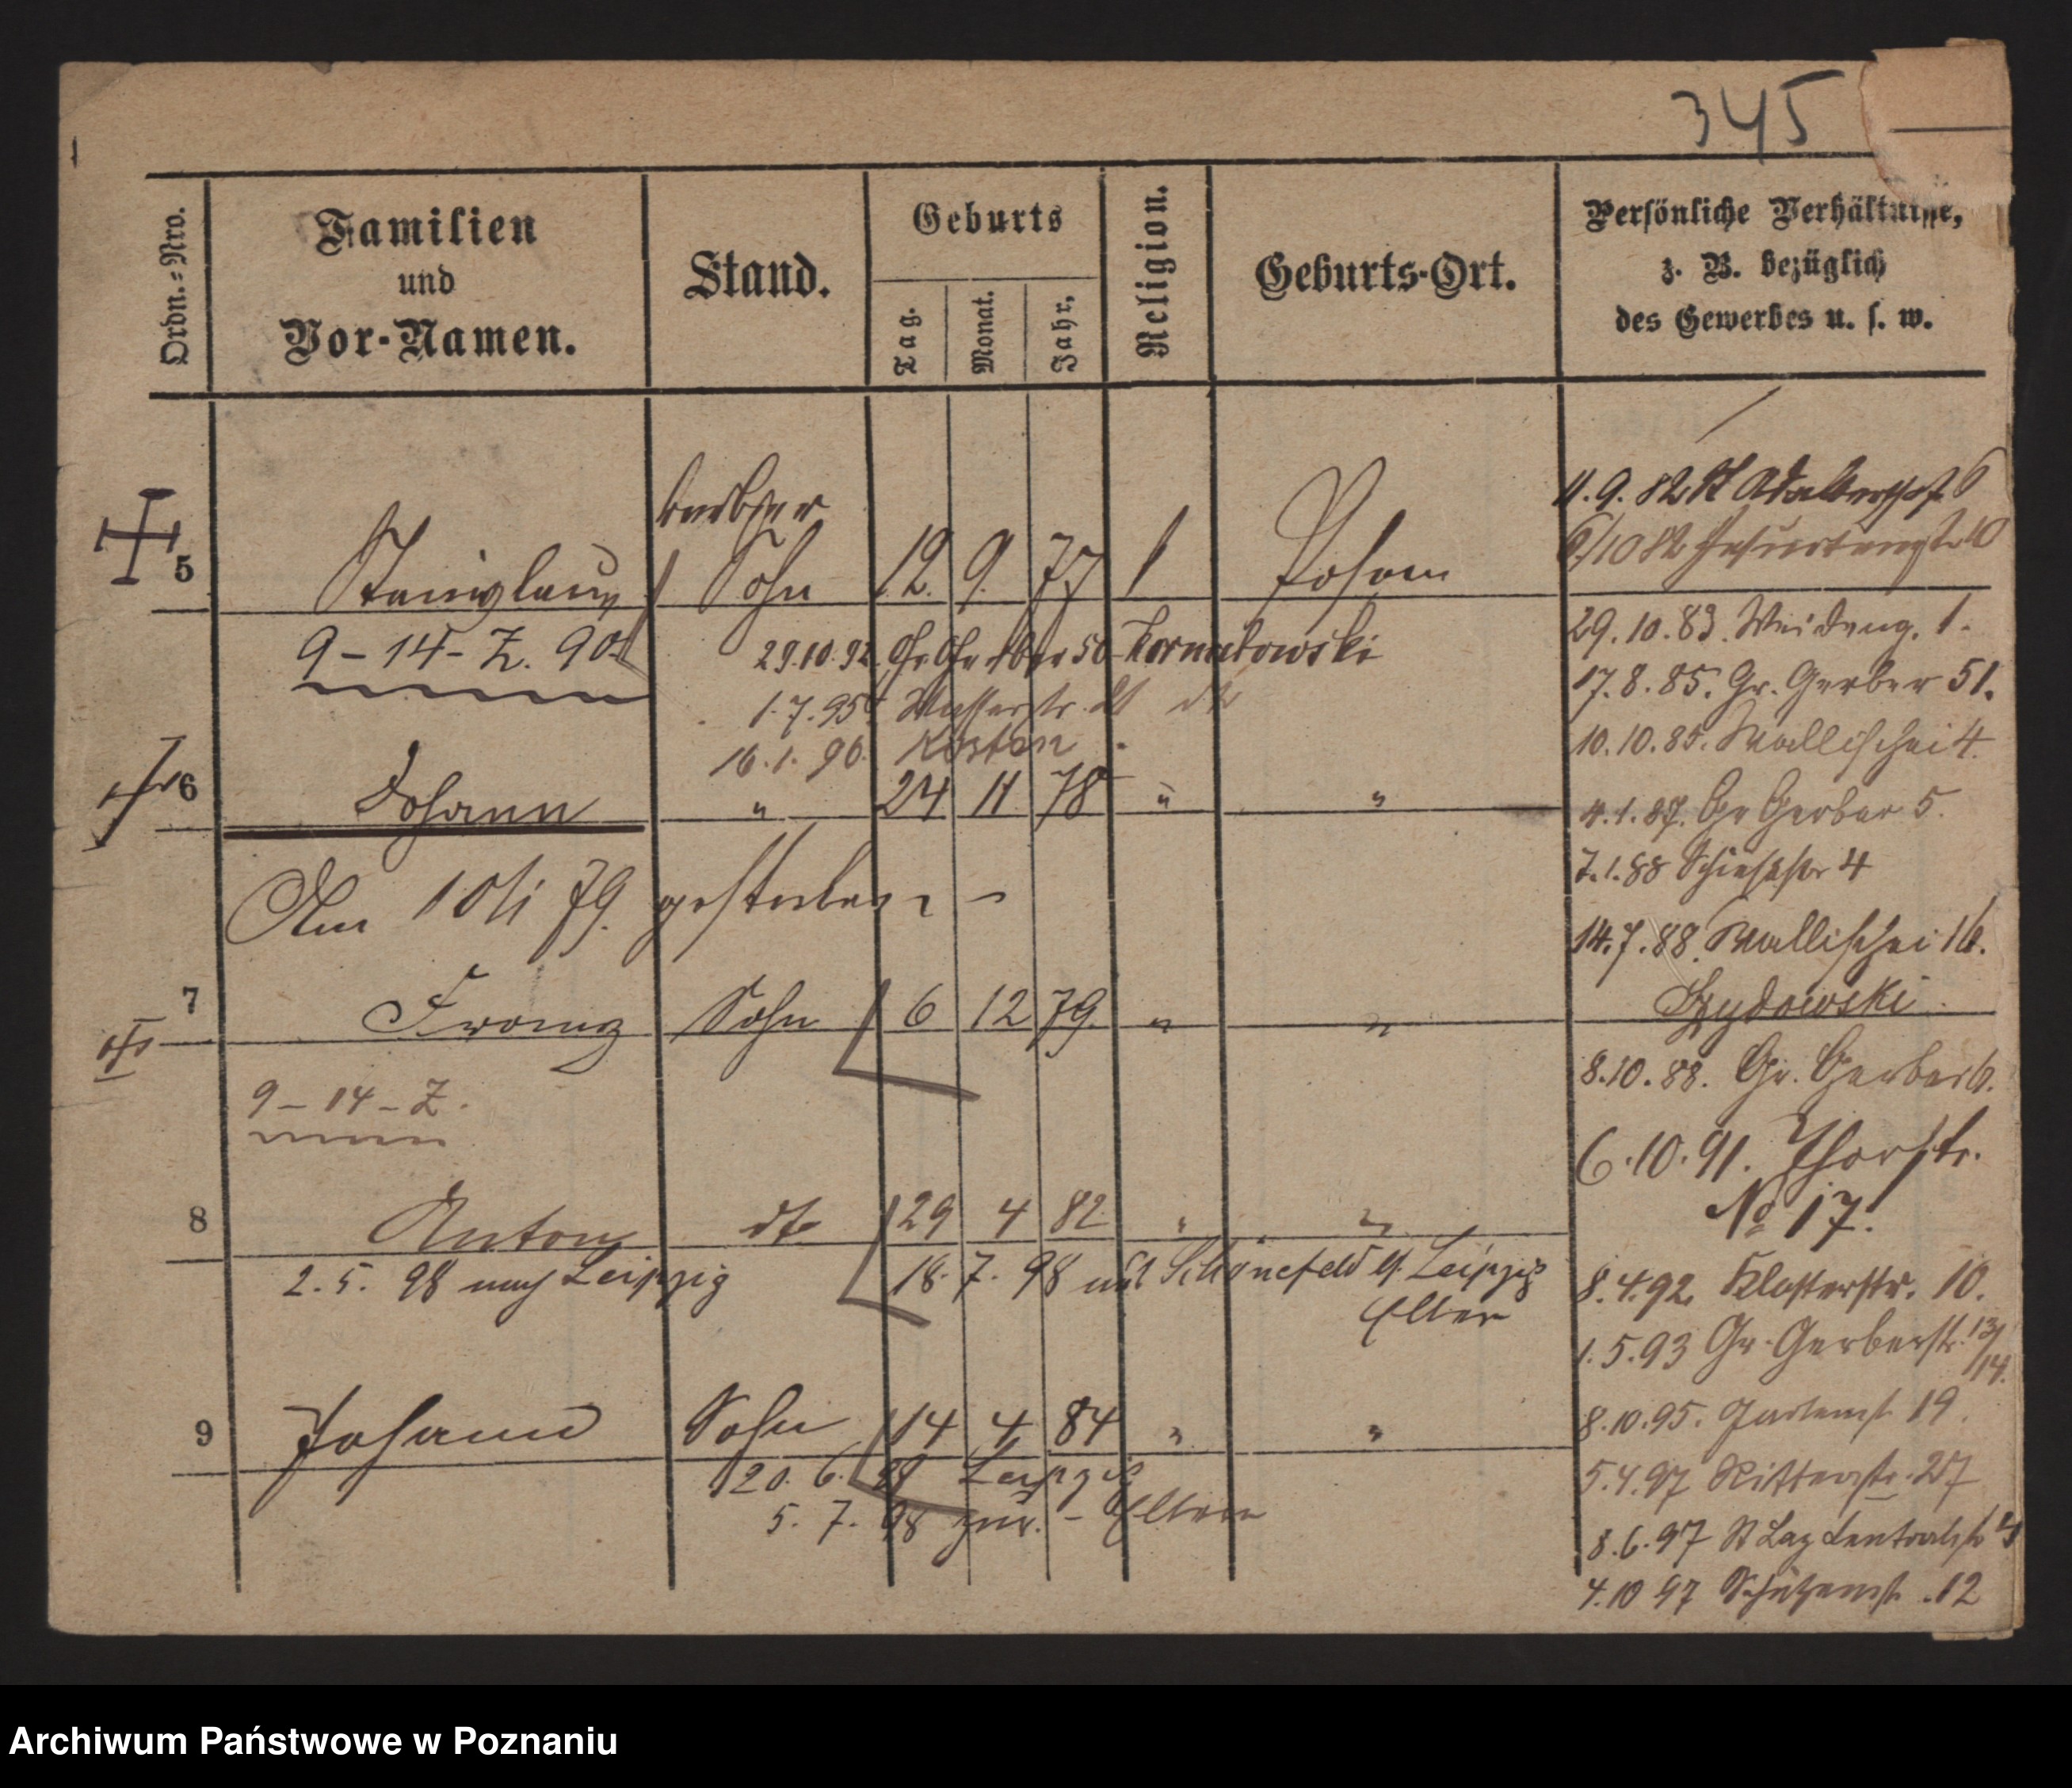 345
Ordn.=Nro.
Familien
und
Vor-Namen.
Stand.
Geburts
Tag.
Monat.
Jahr.
Religion.
Geburts-Ort.
Persönliche Verhältnisse,
z. B. bezüglich
des Gewerbes u. s. w.
5 Stanislaus Sohn 12. 9. 77 Posen
9-14-Z. 90.
29.10.92. Gr. Gerber 50 Kornatowski
1.7.95 Wasserstr. dto
16.1.96. Kosten
6 Johann " 24 11 78 " "
Am 79. gestorben
7 Franz Sohn 6 12 79. " "
9-14-Z.
8 Anton dto 29 4 82 " "
2.5. 98 nach Leipzig
18. 7. 98 aus Schönefeld b. Leipzig
Eltern
9 Johann Sohn 14 4 84 " "
20. 6. 98 Leipzig
5. 7. 98 zur. - Eltern
4.9.82 St Adalbertstr. 6
6/10 82
29.10.83. Weideng. 1.
17.8.85. Gr. Gerber 51.
10.10.85. Wallischei 4.
4.1.87. Gr Gerber 5.
7.1.88 Schießstr 4
14.7.88. Wallischei 16.
8.10.88. Gr. Gerber 6.
6.10.91. Thorstr.
No 17.
8.4.92. Klosterstr. 10.
1.5.93 Gr. Gerberstr. 13/14.
8.10.95. Gartenst 19.
5.4.97 Ritterstr. 27
8.6.97 St Laz Centralstr
4.10 97 Schützenst. 12
Archiwum Państwowe w Poznaniu